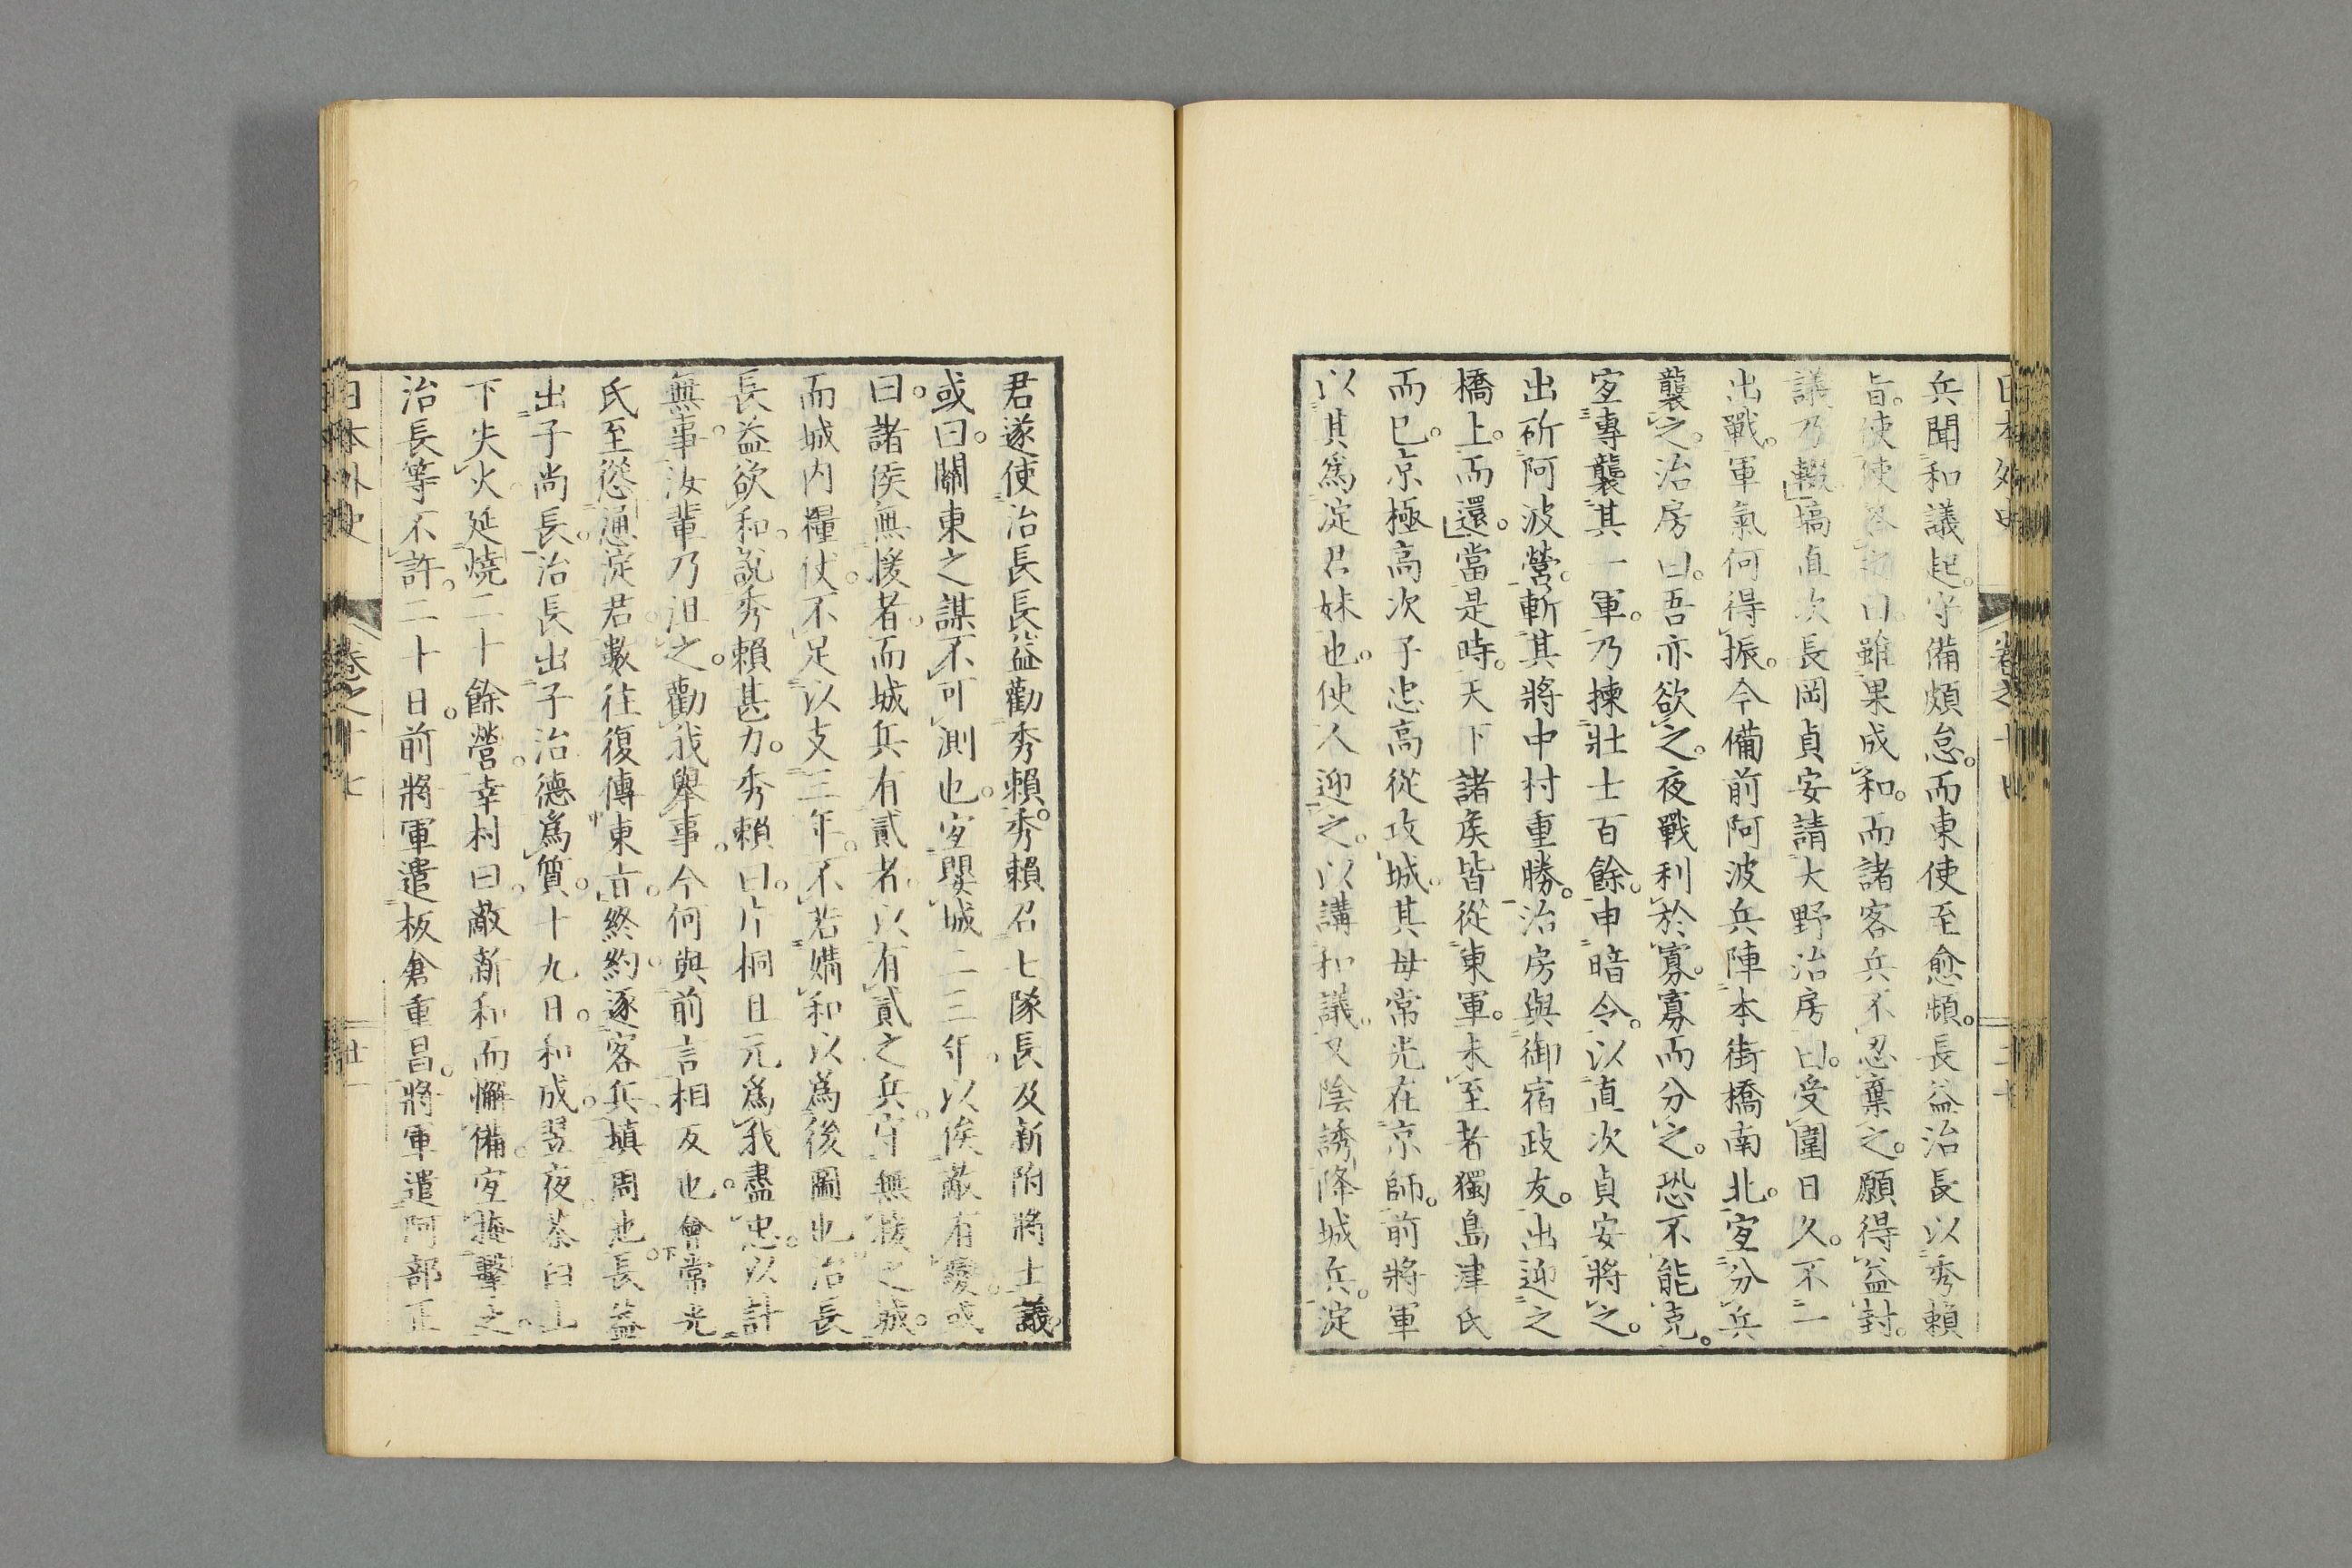 兵聞和議起。守備頗怠。而東使至愈頻。長益治長以秀賴
旨。使使答曰。雖果成和。而諸客兵不忍棄之。願得益封。
議乃輟。塙直次長岡貞安請大野治房曰。受圍日久。不一
出戰。軍氣何得振。今備前阿波兵陣本街橋南北。宜分兵
襲之。治房曰。吾亦欲之。夜戰利於寡。寡而分之。恐不能克。
宜專襲其一軍。乃揀壯士百餘。申暗令。以直次貞安將之。
出斫阿波營。斬其將中村重勝。治房與御宿政友。出迎之
橋上。而還。當是時。天下諸侯皆從東軍。未至者獨島津氏
而已。京極高次子忠高從攻城。其母常光在京師。前將軍
以其爲淀君妹也。使人迎之。以講和議。又陰誘降城兵。淀
君遂使治長長益勸秀賴。秀賴召七隊長及新附將士議。
或曰。關東之謀不可測也。宜嬰城二三年。以俟敵有變。或
曰。諸侯無援者。而城兵有貳者。以有貳之兵。守無援之城。
而城内糧仗。不足以支三年。不若媾和以爲後圖也。治長
長益欲和。說秀賴甚力。秀賴曰。片桐且元爲我盡忠。以計
無事。汝輩乃沮之。勸我擧事。今何與前言相反也。會常光
氏至。慫慂淀君。數往復傳東旨。終約。逐客兵塡周池。長益
出子尚長。治長出子治德爲質。十九日。和成。翌夜。茶臼山
下失火。延燒二十餘營。幸村曰。敵新和而懈備。宜掩擊之。
治長等不許。二十日。前將軍遣板倉重昌。將軍遣阿部正
日本外史　卷之十七